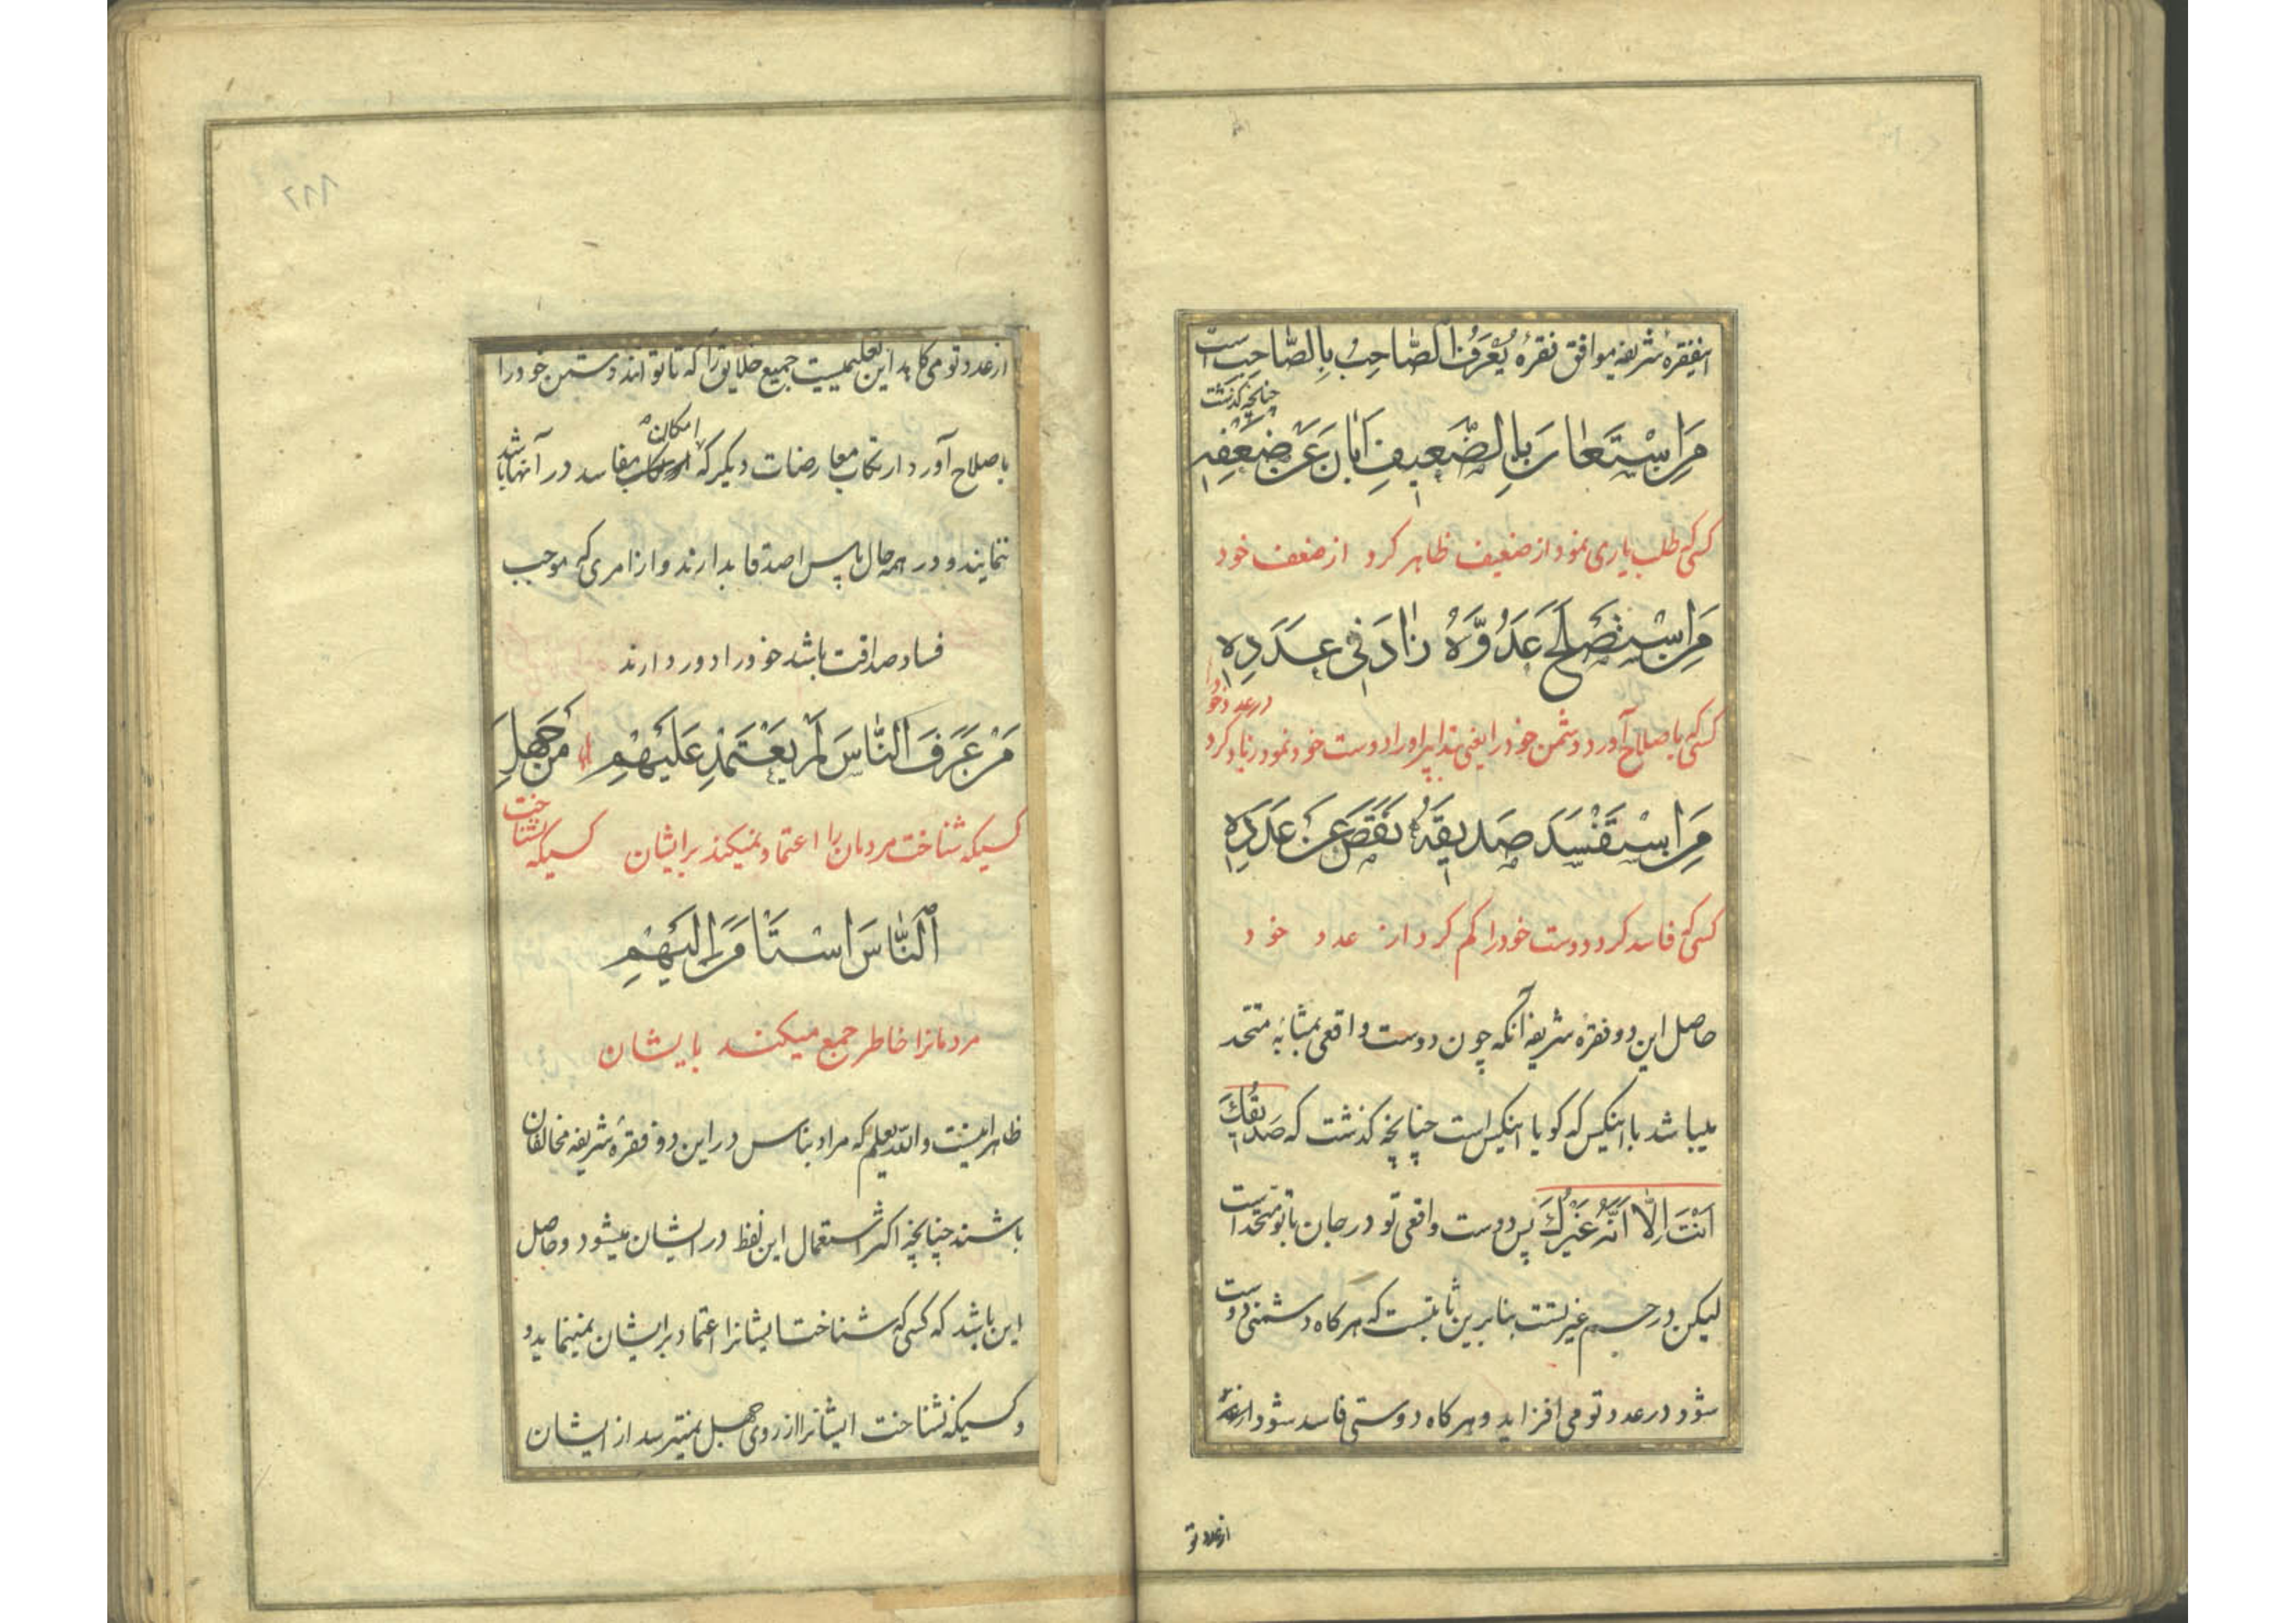 اینفقره شریفه موافق فقره یُعْرَفُ الصّاحِبُ بِالصّاحِبِ است
چنانچه گذشت
مَنِ اسْتَعانَ بِالضَّعیفِ اَبانَ عَنْ ضَعْفِهِ
کسی که طلب یاری نمود از ضعیف ظاهر کرد از ضعف خود
مَنِ اسْتَصْلَحَ عَدُوَّهُ زادَ فی عَدَدِهِ
در عدد خود
کسی که باصلاح آورد دشمن خود را یعنی بتدابیر او را دوست خود نمود زیاد کرد
مَنِ اسْتَفْسَدَ صَدیقَهُ نَقَصَ عَنْ عَدَدِهِ
کسی که فاسد کرد دوست خود را کم کرد از عدد خود
حاصل این دو فقره شریفه آنکه چون دوست واقعی بمثابه متحد
میباشد با اینکس که گویا اینکس است چنانچه گذشت که صَدیقُکَ
اَنْتَ اِلّا اَنَّهُ غَیْرُکَ پس دوست واقعی تو در جان با تو متحد است
لیکن در جسم غیر تست بنابرین ثابتست که هر کاه دشمنی دوست
شود در عدد تو می افزاید و هر کاه دوستی فاسد شود از عدد
از عدد تو
از عدد تو می کاهد این تعلیمیست جمیع خلایق را که تا توانند دشمن خود را
باصلاح آورد ارتکاب معارضات دیگر که امکان مفاسد در آنها باشد
ننمایند و در همه حال پاس اصدقا بدارند و از امری که موجب
فساد صداقت باشد خود را دور دارند
مَنْ عَرَفَ النّاسَ لَمْ یَعْتَمِدْ عَلَیْهِمْ مَنْ جَهِلَ
کسیکه شناخت مردمان را اعتماد نمیکند برایشان کسیکه نشناخت
اَلنّاسَ اسْتَنامَ اِلَیْهِمْ
مردمانرا خاطر جمع میکند بایشان
ظاهر اینست والله یعلم که مراد بناس در این دو فقره شریفه مخالفان
باشند چنانچه اکثر استعمال این لفظ در ایشان میشود و حاصل
این باشد که کسی که شناخت ایشانرا اعتماد برایشان نمینماید و
و کسیکه نشناخت ایشانرا از روی جهل نمیترسد از ایشان